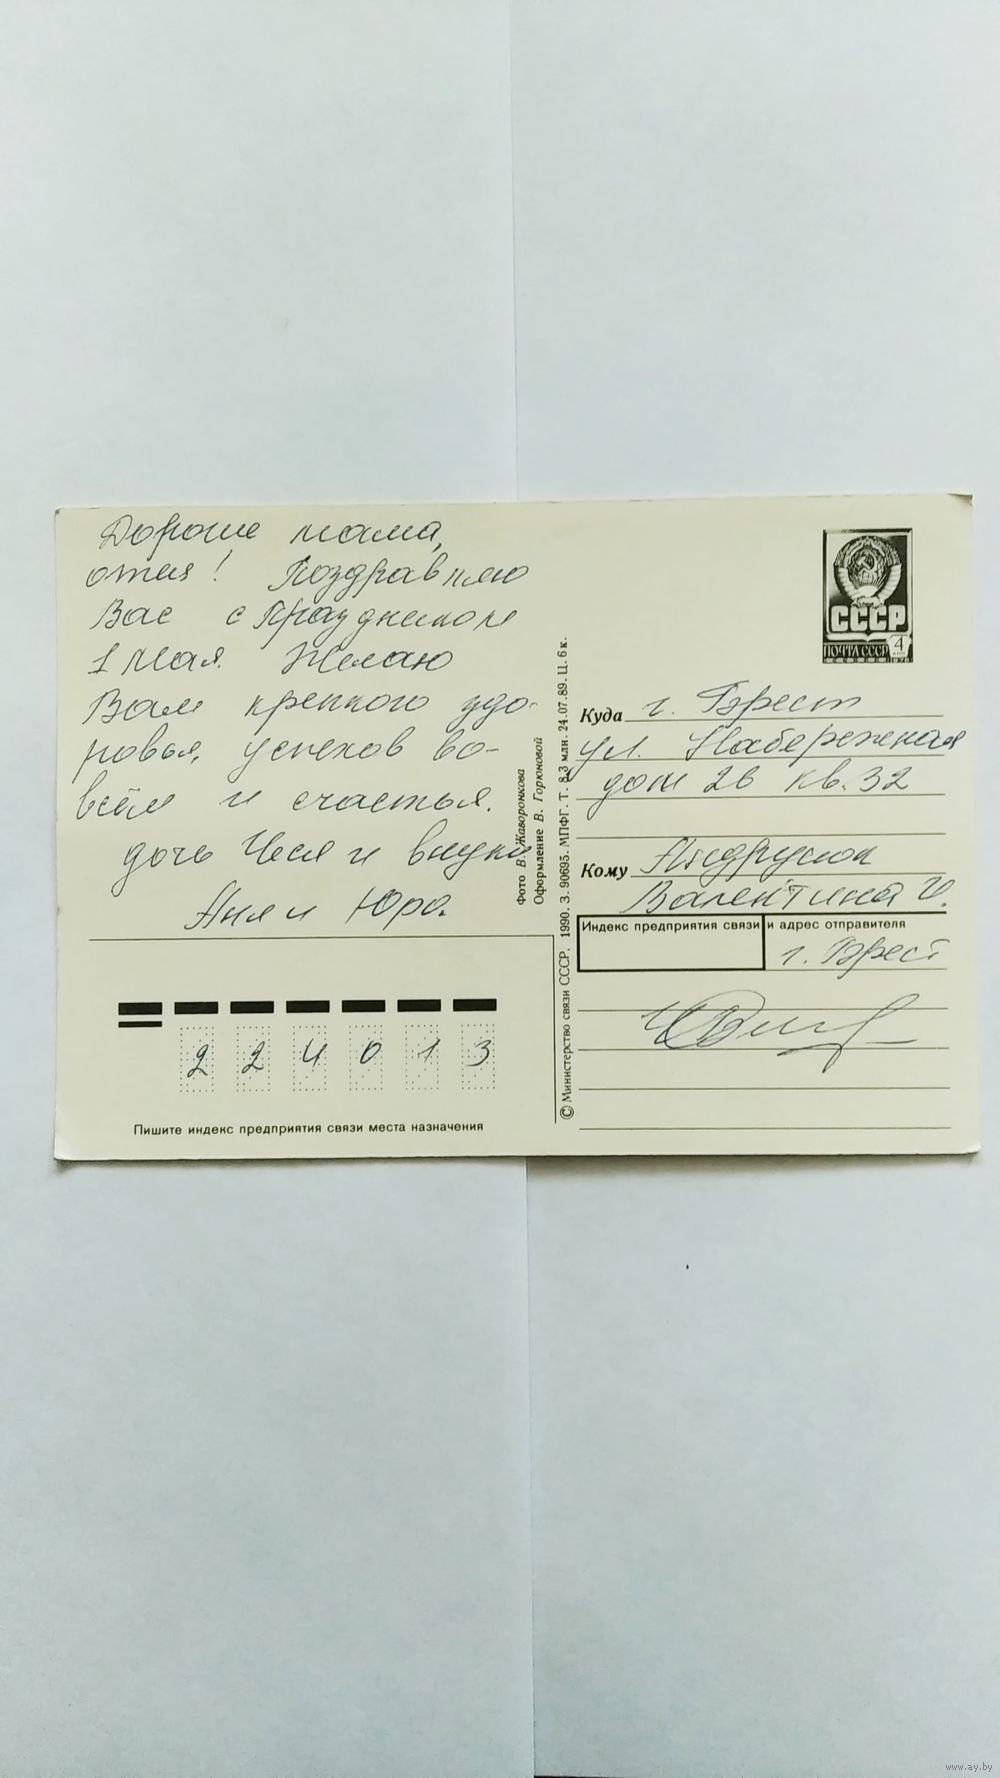 Дорогие мама,
отец! Поздравляю
Вас с праздником
1 Мая. Желаю
Вам крепкого здо-
ровья, успехов во-
всём и счастья.
дочь Чеся и внуки
Аня и Юра.
2 2 4 0 1 3
Пишите индекс предприятия связи места назначения
Фото В. Жаворонкова
Оформление В. Горюновой
© Министерство связи СССР. 1990. З. 90695. МПФГ. Т. 8,3 млн. 24.07.89. Ц. 6 к.
СССР
ПОЧТА СССР 4
Куда г. Брест
ул. Набережная
дом 2в кв. 32
Кому Андрусюк
Валентина И.
Индекс предприятия связи и адрес отправителя
г. Брест
www.ay.by